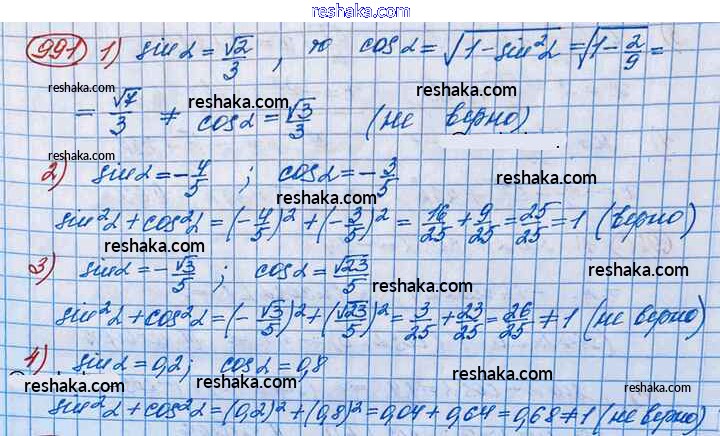 reshaka.com
991 1) sin α = √2/3 , то cos α = √(1 - sin²α) = √(1 - 2/9) =
reshaka.com reshaka.com
= √7/3 ≠ cos α = √3/3 (не верно)
reshaka.com reshaka.com
reshaka.com
2) sin α = -4/5 ; cos α = -3/5
reshaka.com reshaka.com
sin²α + cos²α = (-4/5)² + (-3/5)² = 16/25 + 9/25 = 25/25 = 1 (верно)
reshaka.com reshaka.com
3) sin α = -√3/5 ; cos α = √23/5
reshaka.com reshaka.com
sin²α + cos²α = (-√3/5)² + (√23/5)² = 3/25 + 23/25 = 26/25 ≠ 1 (не верно)
reshaka.com reshaka.com
4) sin α = 0,2; cos α = 0,8
reshaka.com reshaka.com reshaka.com
sin²α + cos²α = (0,2)² + (0,8)² = 0,04 + 0,64 = 0,68 ≠ 1 (не верно)
reshaka.com reshaka.com